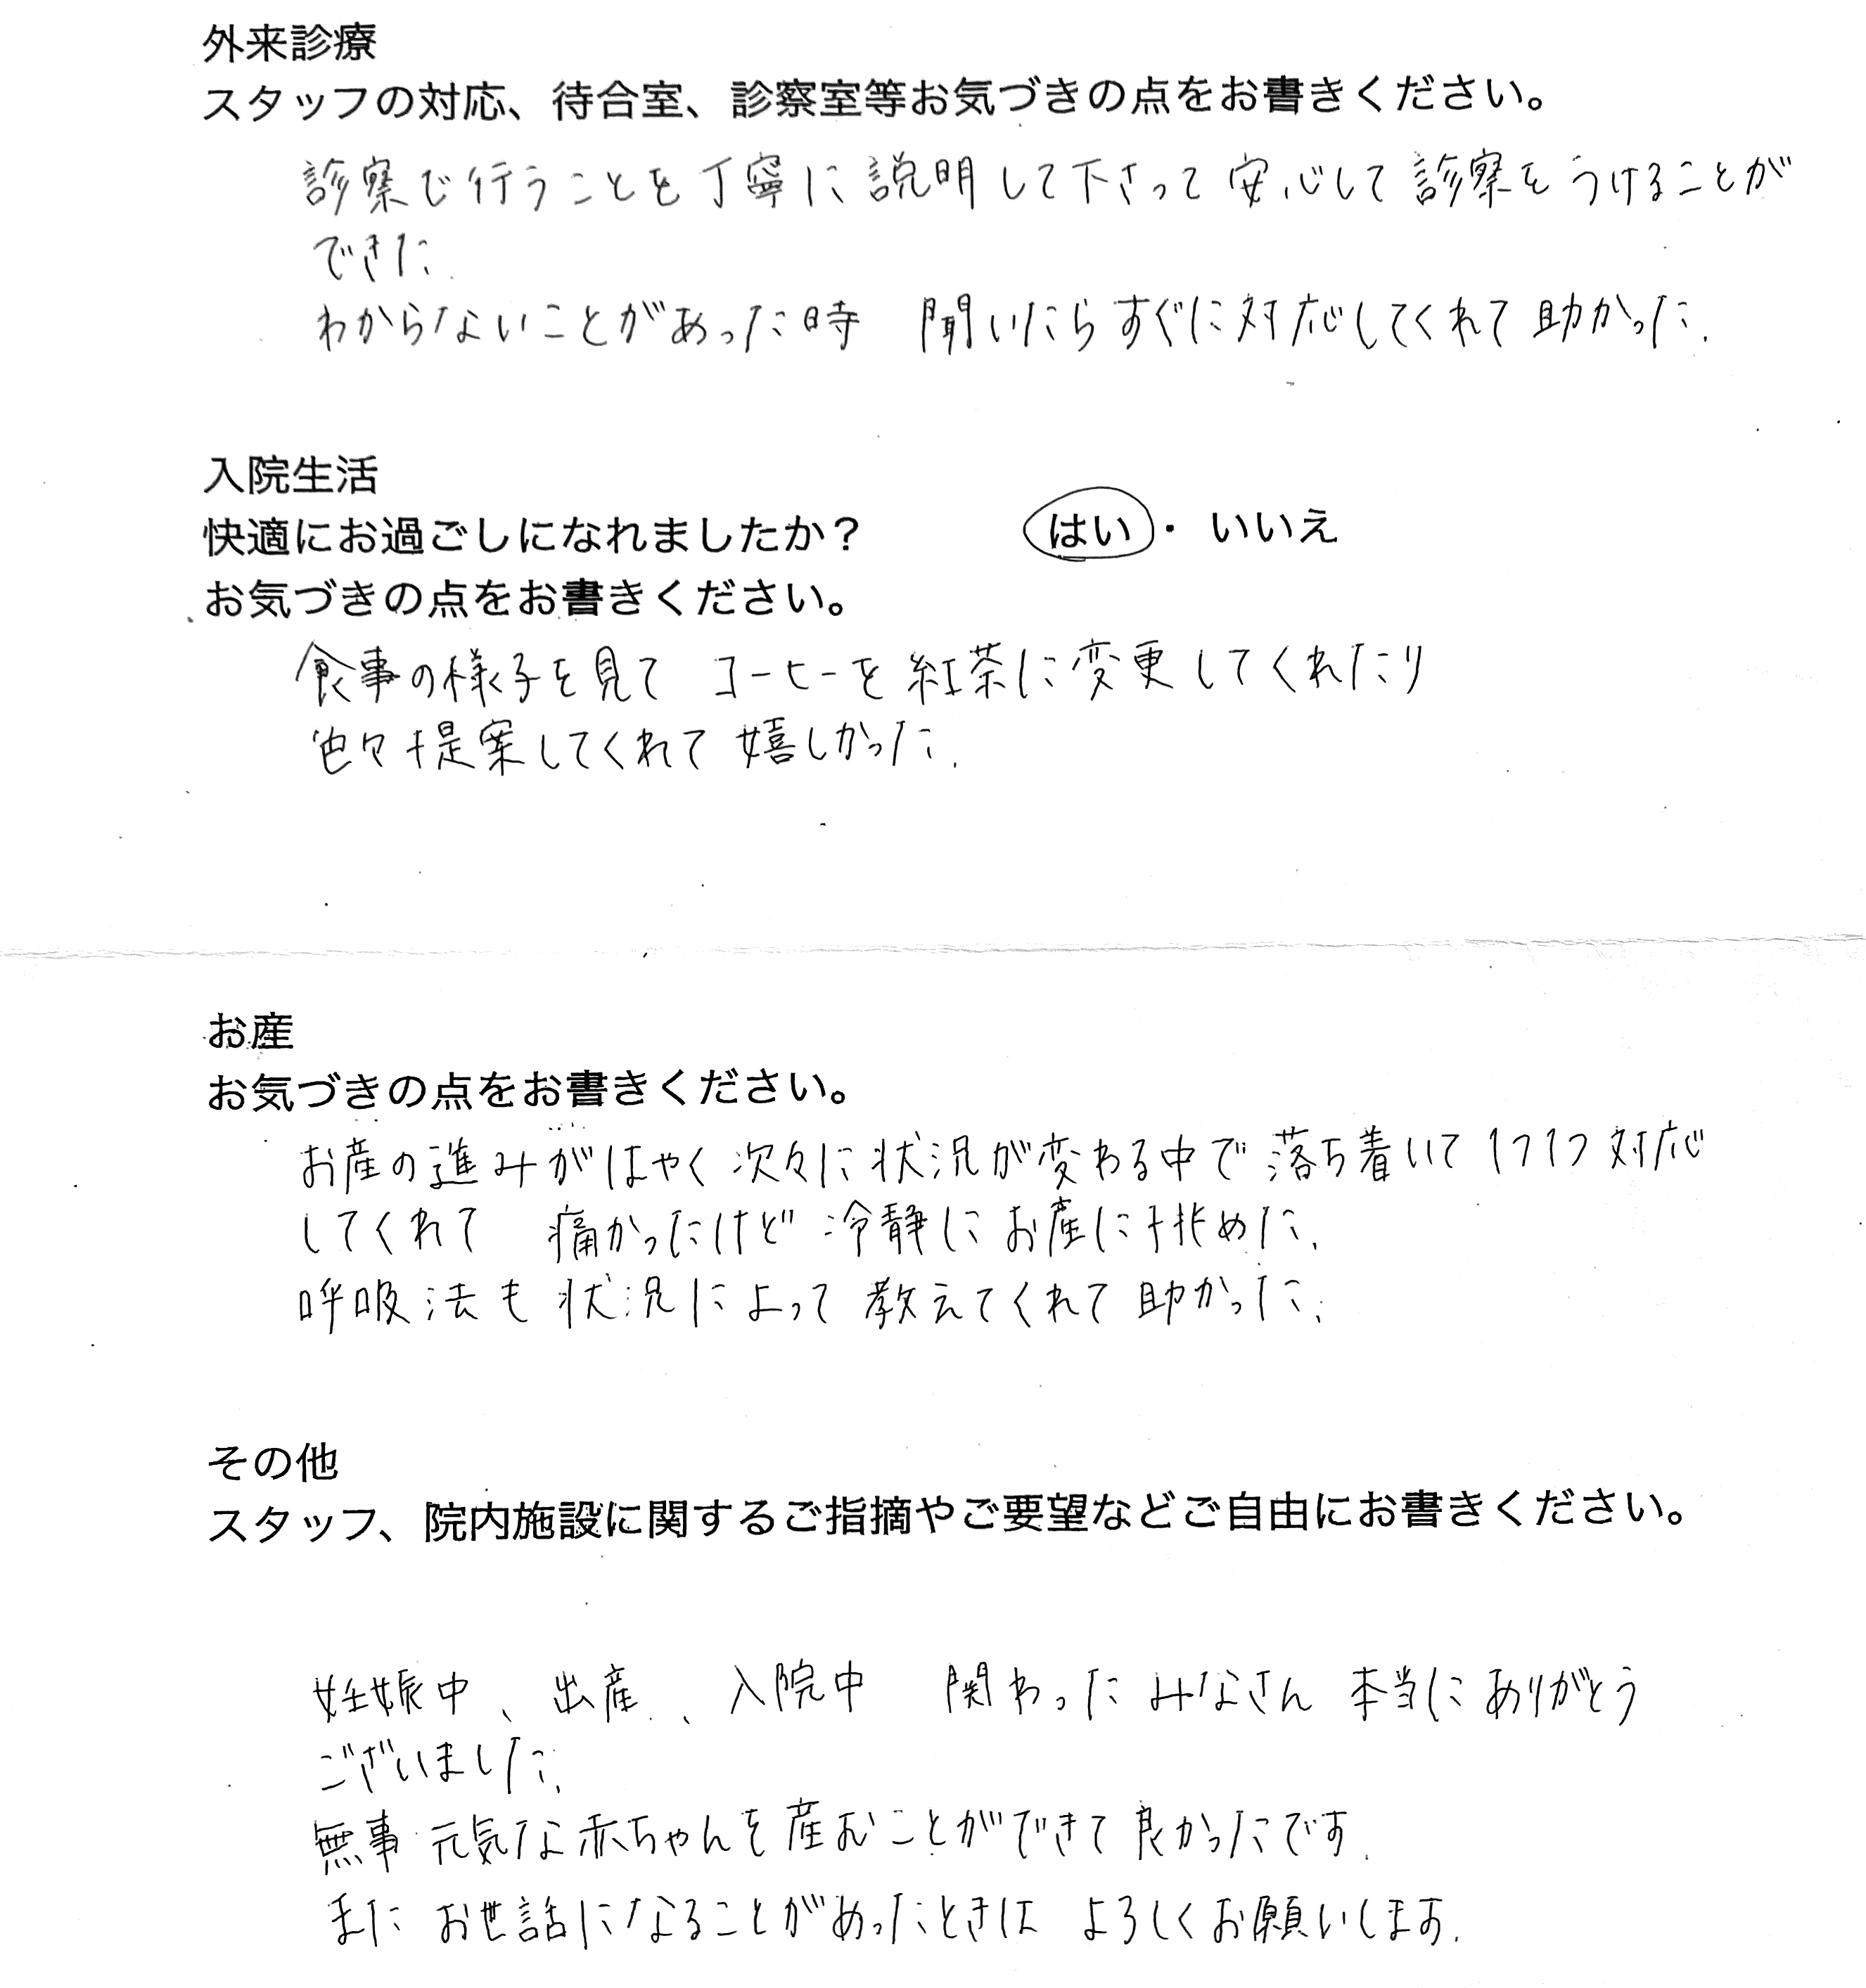 外来診療
スタッフの対応、待合室、診察室等お気づきの点をお書きください。
診察で行うことを丁寧に説明して下さって安心して診察をうけることが
できた.
わからないことがあった時 聞いたらすぐに対応してくれて助かった.
入院生活
快適にお過ごしになれましたか？ はい・いいえ
お気づきの点をお書きください。
食事の様子を見て コーヒーを紅茶に変更してくれたり
色々提案してくれて嬉しかった.
お産
お気づきの点をお書きください。
お産の進みがはやく次々に状況が変わる中で落ち着いて 対応
してくれて 痛かったけど冷静にお産に挑めた.
呼吸法も状況によって教えてくれて助かった.
その他
スタッフ、院内施設に関するご指摘やご要望などご自由にお書きください。
妊娠中、出産、入院中 関わったみなさん本当にありがとう
ございました.
無事元気な赤ちゃんを産むことができて良かったです.
またお世話になることがあったときは よろしくお願いします.